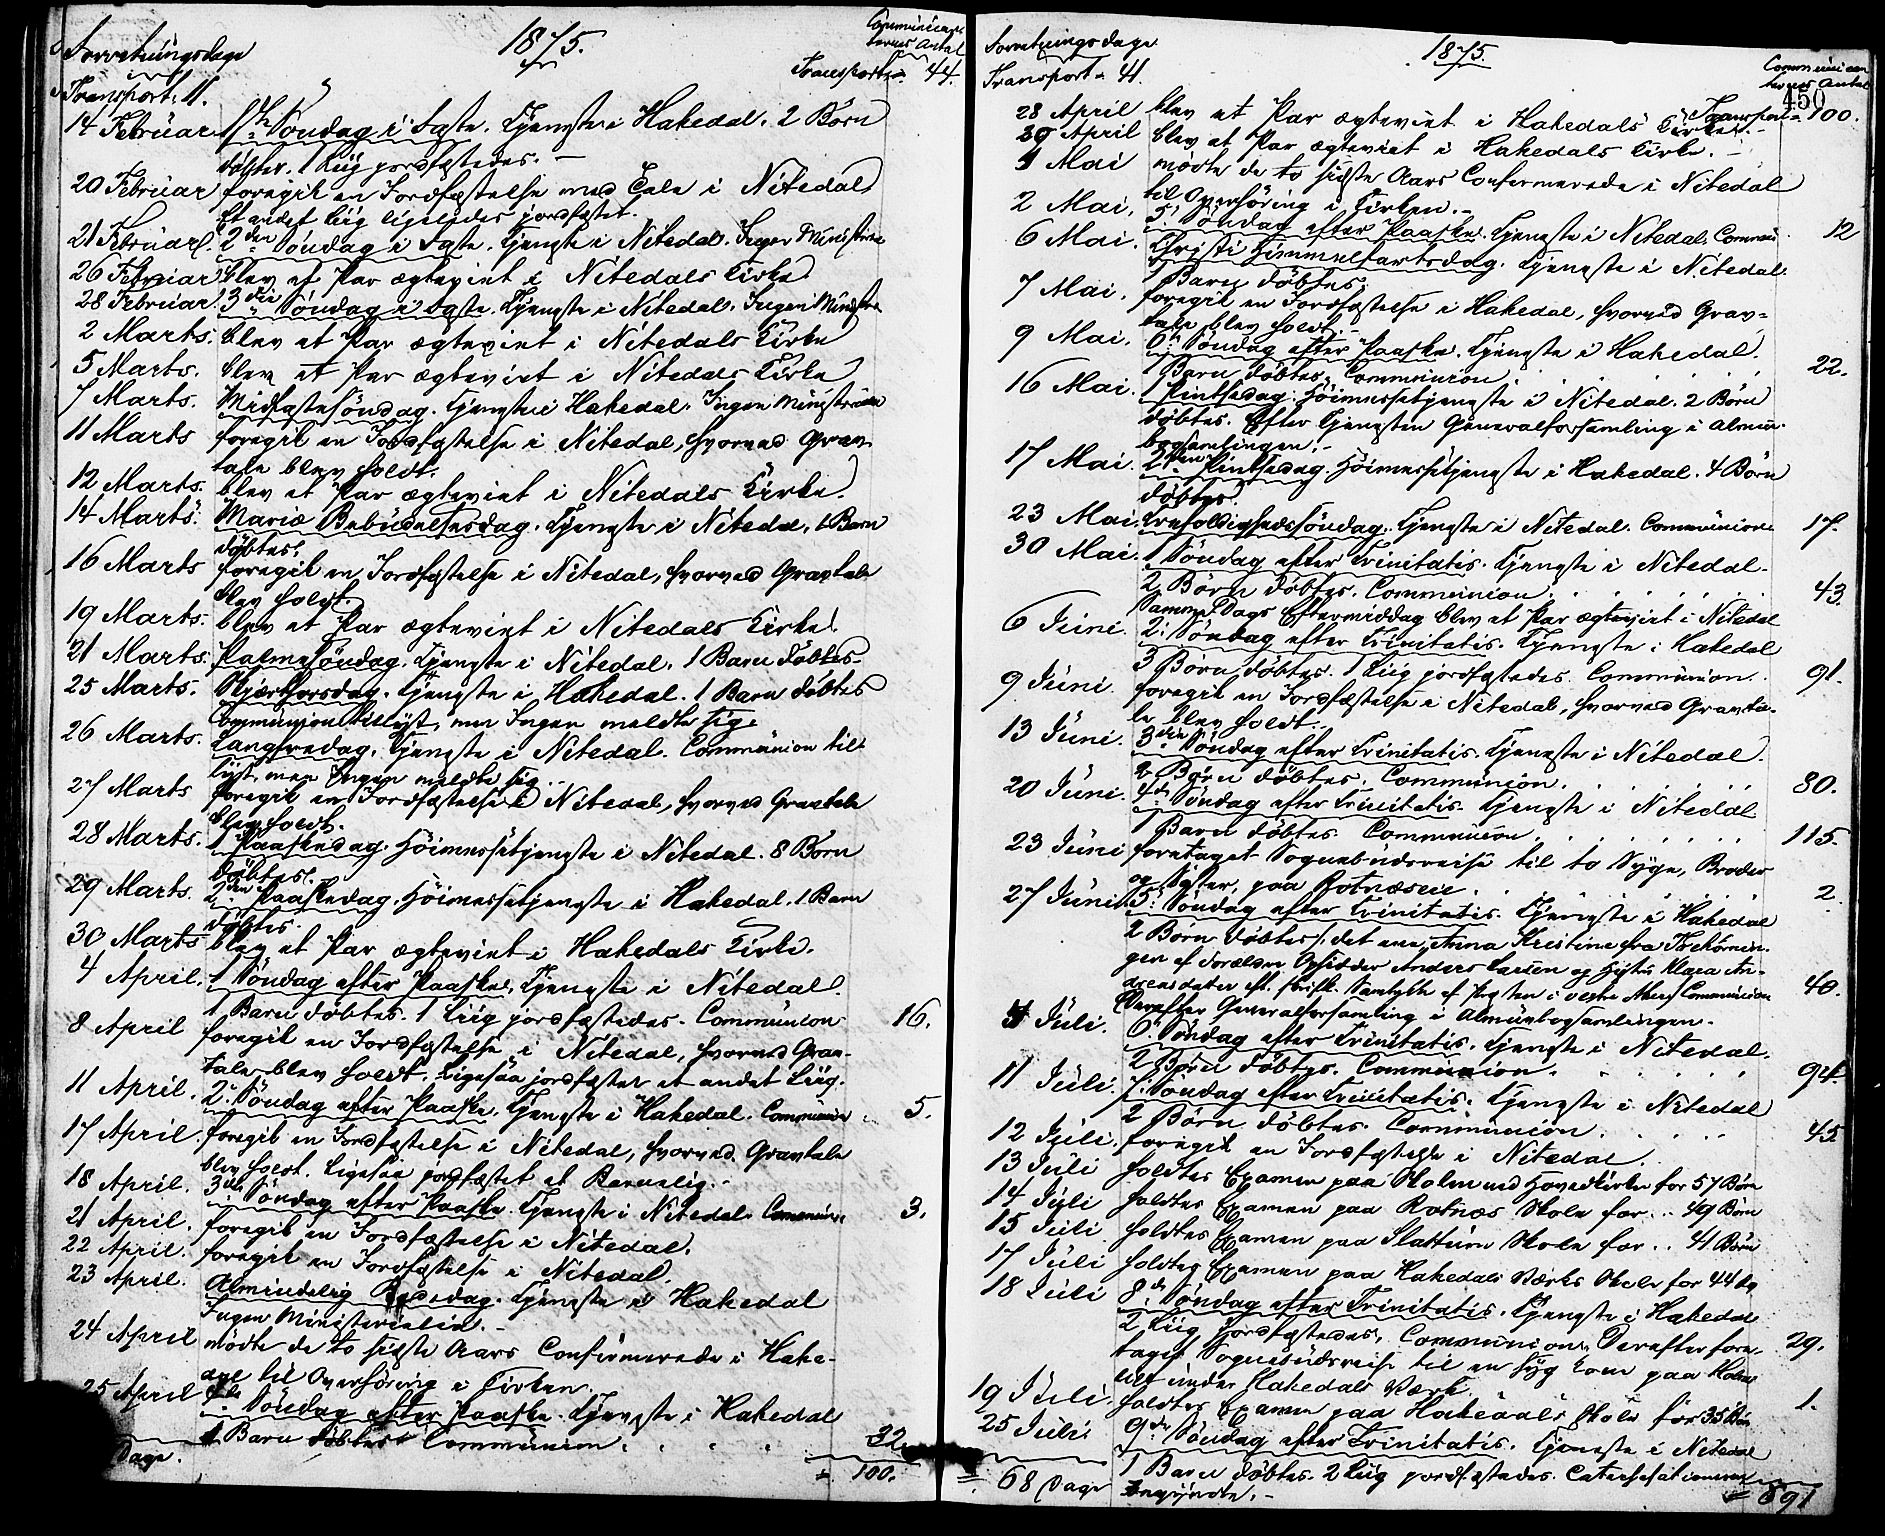 Forretningsdage
1875.
Communican-
ternes Antal
Transport = 44.
Transport: 11.
14 Februar 1ste Söndag i Faste. Tjeneste i Hakedal. 2 Börn
döbtes. 1 Liig jordfæstedes. —
20 Februar foregik en Jordfæstelse med Tale i Nitedal
Et andet Liig ligeledes jordfæstet.
21 Februar. 2den Söndag i Faste. Tjeneste i Nitedal. Ingen Ministeria
26 Februar blev et Par ægteviet i Nitedals Kirke
28 Februar 3die Söndag i Faste. Tjeneste i Nitedal. Ingen Ministeria
2 Marts. blev et Par ægteviet i Nitedals Kirke
5 Marts. blev et Par ægteviet i Nitedals Kirke
7 Marts. Midfastesöndag. Tjeneste i Hakedal. Ingen Ministeria
11 Marts foregik en Jordfæstelse i Nitedal, hvorved Grav-
tale blev holdt.
12 Marts. blev et Par ægteviet i Nitedals Kirke.
14 Marts. Mariæ Bebudelsesdag. Tjeneste i Nitedal, 1 Barn
döbtes.
16 Marts foregik en Jordfæstelse i Nitedal, hvorved Gravtale
blev holdt.
19 Marts. blev et Par ægteviet i Nitedals Kirke.
21 Marts. Palmesöndag. Tjeneste i Nitedal. 1 Barn döbtes
25 Marts. Skjærthorsdag. Tjeneste i Hakedal. 1 Barn döbtes
Communion tillyst, men Ingen meldte sig.
26 Marts. Langfredag. Tjeneste i Nitedal. Communion til-
lyst, men Ingen meldte sig.
27 Marts foregik en Jordfæstelse i Nitedal, hvorved Gravtale
blev holdt.
28 Marts. 1 Paaskedag. Höimessetjeneste i Nitedal. 8 Börn
döbtes.
29 Marts. 2den Paaskedag. Höimessetjeneste i Hakedal. 1 Barn
döbtes.
30 Marts blev et Par ægteviet i Hakedals Kirke.
4 April. 1 Söndag efter Paaske. Tjeneste i Nitedal.
1 Barn döbtes. 1 Liig jordfæstedes. Communion 16.
8 April foregik en Jordfæstelse i Nitedal, hvorved Grav-
tale blev holdt. Ligesaa jordfæstet et andet Liig.
11 April. 2. Söndag efter Paaske. Tjeneste i Hakedal. Communion 5.
17 April. foregik en Jordfæstelse i Nitedal, hvorved Gravtale
blev holdt. Ligesaa jordfæstet et Barnelig. -
18 April. 3die Söndag efter Paaske. Tjeneste i Nitedal. Communion 3.
21 April. foregik en Jordfæstelse i Nitedal.
22 April. foregik en Jordfæstelse i Nitedal.
23 April. Almindelig Bededag. Tjeneste i Hakedal
Ingen Ministerialia. -
24 April mödte de to sidste Aars Confirmerede i Hake-
dal til Overhöring i Kirken.
25 April 4de Söndag efter Paaske. Tjeneste i Hakedal
1 Barn döbtes. Communion. 32.
Dage.
= 100.
Forretningsdage
1875.
Communican
ternes Antal
450
Transport = 41.
Transport = 100.
28 April blev et Par ægteviet i Hakedals Kirke. -
30 April blev et Par ægteviet i Hakedals Kirke. -
1 Mai mödte de to sidste Aars Confirmerede i Nitedal
til Overhöring i Kirken. -
2 Mai. 5. Söndag efter Paaske. Tjeneste i Nitedal. Commun. 12
6 Mai. Christi Himmelfartsdag. Tjeneste i Nitedal.
1 Barn döbtes.
7 Mai. foregik en Jordfæstelse i Hakedal, hvorved Grav=
tale blev holdt. -
9 Mai. 6. Söndag efter Paaske. Tjeneste i Hakedal.
1 Barn döbtes. Communion. 22.
16 Mai. 1 Pintsedag. Höimessetjeneste i Nitedal. 2 Börn
döbtes. Efter Tjenesten Generalforsamling i Almue-
bogsamlingen. -
17 Mai. 2den Pintsedag. Höimessetjeneste i Hakedal. 4 Börn
döbtes.
23 Mai. Trefoldighedssöndag. Tjeneste i Nitedal. Communion. 17.
30 Mai. 1 Söndag efter Trinitatis. Tjeneste i Nitedal.
2 Börn döbtes. Communion. 43.
Samme Dags Eftermiddag blev et Par ægteviet i Nitedal
6 Juni. 2. Söndag efter Trinitatis. Tjeneste i Hakedal
3 Börn döbtes. 1 Liig jordfæstedes. Communion. 91.
9 Juni. foregik en Jordfæstelse i Nitedal, hvorved Gravta-
le blev holdt.
13 Juni. 3die Söndag efter Trinitatis. Tjeneste i Nitedal.
2 Börn döbtes. Communion. 80.
20 Juni. 4de Söndag efter Trinitatis. Tjeneste i Nitedal
1 Barn döbtes. Communion. 115.
23 Juni foretaget Sognebudsreise til to Syge, Broder
og Söster, paa Rotnæseie. 2.
27 Juni 5. Söndag efter Trinitatis. Tjeneste i Hakedal
2 Börn döbtes, det ene, Anna Kristine fra
gen af Forældre Opsidder Anders Larsen og Hustru Klara An-
dreasdatter eft. skriftl. Samtykke af Præsten i Vestre Aker. Communion 40.
Derefter Generalforsamling i Almuebogsamlingen. -
4 Juli. 6. Söndag efter Trinitatis. Tjeneste i Nitedal.
2 Börn döbtes. Communion. 94.
11 Juli. 7. Söndag efter Trinitatis. Tjeneste i Nitedal
2 Börn döbtes. Communion. 45.
12 Juli. foregik en Jordfæstelse i Nitedal.
13 Juli holdtes Examen paa Skolen ved Hovedkirken for 57 Börn
14 Juli holdtes Examen paa Rotnæs Skole for .. 49 Börn
15 Juli holdtes Examen paa Slattum Skole for .. 41 Börn
17 Juli holdtes Examen paa Hakedals Værks Skole for 44
18 Juli 8de Söndag efter Trinitatis. Tjeneste i Hakedal
2 Liig jordfæstedes. Communion. Derefter fore-
taget Sognebudsreise til en syg Kone paa 29.
under Hakedals Værk. 1.
19 Juli. holdtes Examen paa Hakedals Skole for 35 Börn
25 Juli. 9de Söndag efter Trinitatis. Tjeneste i Nitedal
1 Barn döbtes. 2 Liig jordfæstedes. Catechisationerne
= 68 Dage begyndte. - = 691